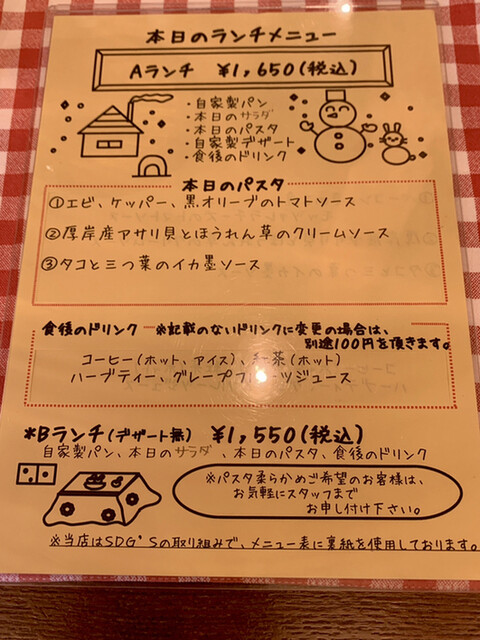 本日のランチメニュー
Aランチ ¥1,650(税込)
・自家製パン
・本日のサラダ
・本日のパスタ
・自家製デザート
・食後のドリンク
本日のパスタ
①エビ、ケッパー、黒オリーブのトマトソース
②厚岸産アサリ貝とほうれん草のクリームソース
③タコと三つ葉のイカ墨ソース
食後のドリンク ※記載のないドリンクに変更の場合は、
別途100円を頂きます。
コーヒー(ホット、アイス)、紅茶(ホット)
ハーブティー、グレープフルーツジュース
*Bランチ(デザート無) ¥1,550(税込)
自家製パン、本日のサラダ、本日のパスタ、食後のドリンク
※パスタ柔らかめご希望のお客様は、
お気軽にスタッフまで
お申し付け下さい。
※当店はSDG'Sの取り組みで、メニュー表に裏紙を使用しております。